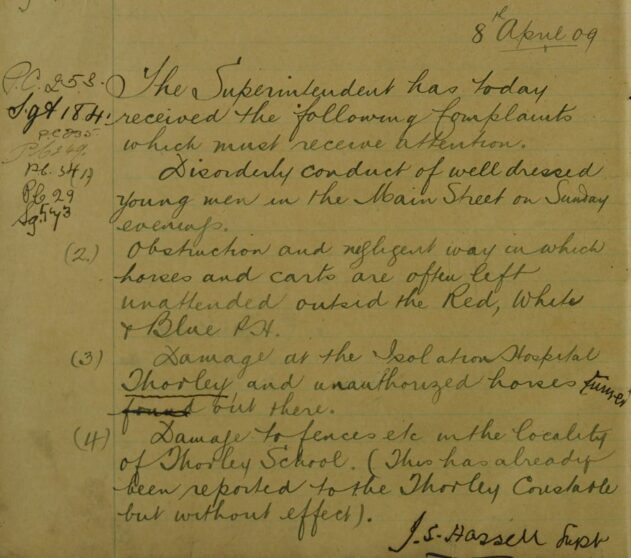 8th April 09
P.C. 253.
Sgt 184.
P.C 835
P.C. 34
P.C. 29
Sgt 573
The Superintendent has today
received the following Complaints
which must receive attention.
(1) Disorderly conduct of well dressed
young men in the Main Street on Sunday
evenings.
(2.) Obstruction and negligent way in which
horses and carts are often left
unattended outside the Red, White
& Blue P.H.
(3) Damage at the Isolation Hospital
Thorley and unauthorized horses turned
found out there.
(4) Damage to fences etc in the locality
of Thorley School. (This has already
been reported to the Thorley Constable
but without effect).
J. S. Hassell Supt